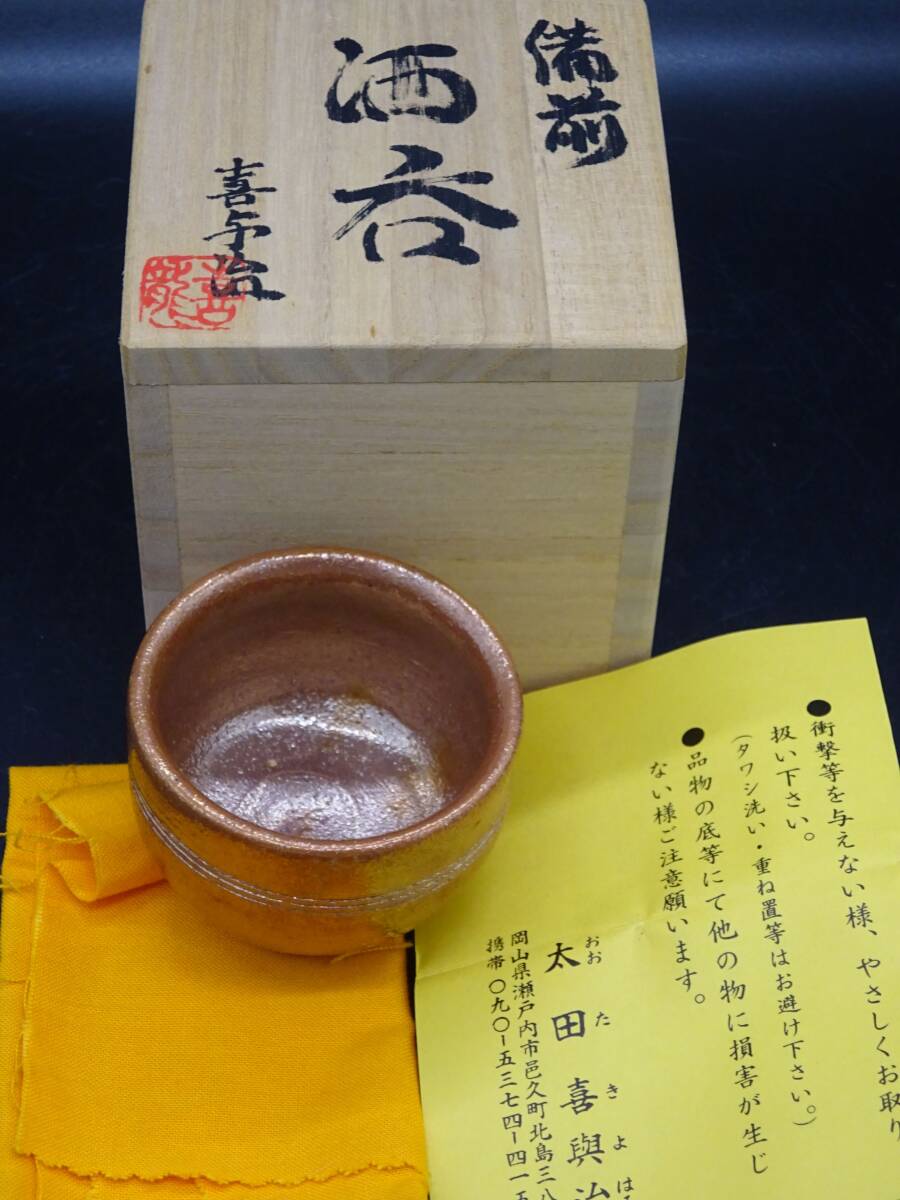 備前
酒呑
喜与治
●衝撃等を与えない様、やさしくお取り
扱い下さい。
(タワシ洗い・重ね置等はお避け下さい。)
●品物の底等にて他の物に損害が生じ
ない様ご注意願います。
おおたきよは
太田喜與治
岡山県瀬戸内市邑久町北島三八
携帯〇九〇-五三七四-四一五